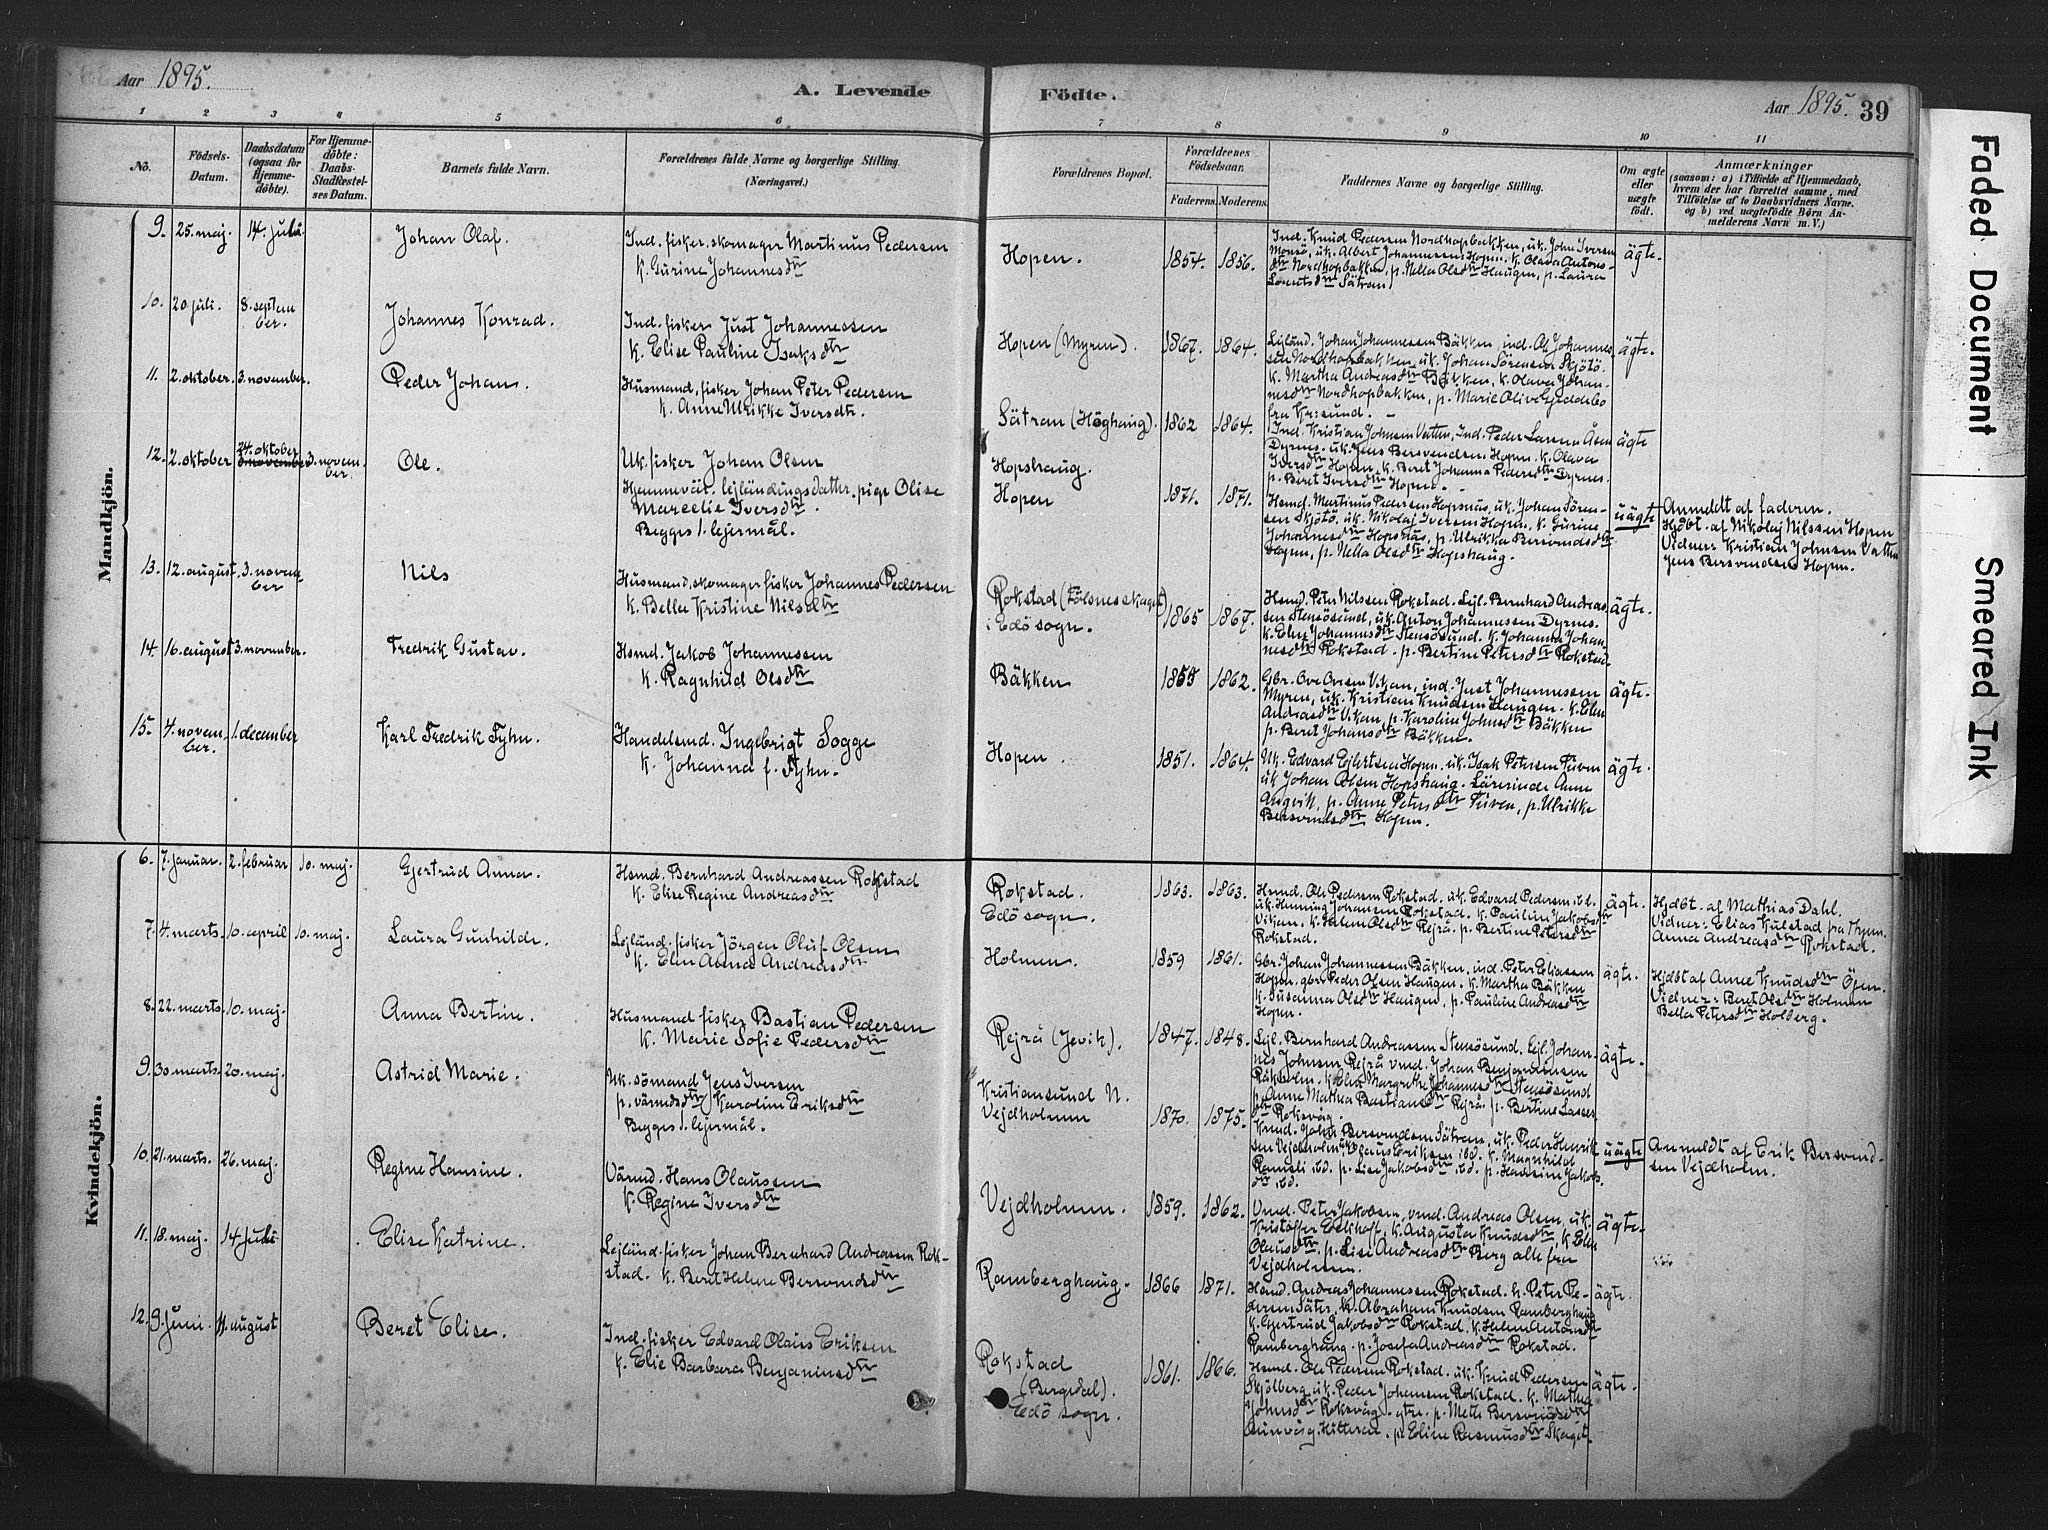 Aar 1895.
A. Levende
Födte.
Aar 1895. 39
1 2 3 4 5 6 7 8 9 10 11
No.
Födsels-
Datum.
Daabsdatum
(ogsaa for
Hjemme-
döbte).
For Hjemme-
döbte:
Daabs-
Stadfæstel-
ses Datum.
Barnets fulde Navn.
Forældrenes fulde Navne og borgerlige Stilling.
(Næringsvei.)
Forældrenes Bopæl.
Forældrenes
Födselsaar.
Faderens. Moderens.
Faddernes Navne og borgerlige Stilling.
Om ægte
eller
uægte
födt.
Anmærkninger
(saasom: a) i Tilfælde af Hjemmedaab,
hvem der har forrettet samme, med
Tilföielse af to Daabsvidners Navne.
og b) ved uægtefödte Börn An-
melderens Navn m. V.)
Mandkjön.
9. 25. maj. 14. juli. Johan Olaf.
Ind. fisker. skomager Martinus Pedersen
k. Gurine Johannesdtr
Hopen. 1854. 1856.
Ind. Knud Pedersen Nordhopbakken, uk. John Iversen
Monsö, uk. Albert Johannessen Hopen. k. Olava Antons-
dtr Nordhopbakken, p. Nella Olsdtr Haugen, p. Laura
Lorentsdtr Sätran.
ägte.
10. 20. juli. 8. septem
ber.
Johannes Konrad.
Ind. fisker Just Johannessen
k. Elise Pauline Isaksdtr
Hopen (Myren). 1867. 1864.
Lejländ. Johan Johannessen Bäkken, ind. Ole Johannes-
sen Nordhopbakken, uk. Johan Sörensen Skjötö.
k. Martha Andreasdtr Bäkken, k. Olava Johan-
nesdtr Nordhopbakken, p. Marie Olive Gjeddebo
fra Kr:sund.
ägte.
11. 2. oktober. 3. november. Peder Johan.
Husmand, fisker Johan Peter Pedersen
k. Anne Ulrikke Iversdtr.
Sätran (Höghaug). 1862 1864.
Ind. Kristian Johnsen Vatten, Ind. Peder Larsen Åsen
Dyrnes. uk. Jens Bersvendsen Hopen. k. Olava
Iversdtr Hopen, k. Beret Johanna Pedersdtr Dyrnes.
p. Beret Iversdtr Hopen.
ägte
12. 2. oktober 24. oktober 3. novem-
ber.
Ole.
Uk. fisker Johan Olsen
Hjemmevär. lejländingsdatter. pige Olise
Marcelie Iversdtr.
Begges 1. lejermål.
Hopshaug.
Hopen 1871. 1871.
Hsmd. Martinus Pedersen Hopsnäs, uk. Johan Sören-
sen Skjötö, uk. Nikolaj Iversen Hopen. k. Gurine
Johannesdtr Hopsnäs, p. Ulrikka Bersvendsdtr
Hopen, p. Nella Olsdtr Hopshaug.
uägte
Anmeldt af faderen.
Hjdbt. af Nikolaj Nilssen Hopen
Vidner: Kristian Johnsen Vatten
Jens Bersvendsen Hopen.
13. 12. august. 3. novem
ber
Nils
Husmand, skomager fisker Johannes Pedersen
k. Bella Kristine Nilsdtr
Rokstad (Fölsnesskaget)
i Edö sogn. 1865 1867.
Hsmd. Peter Nilssen Rokstad. Lejl. Bernhard Andreas-
sen Stensösund, uk. Anton Johannessen Dyrnes.
k. Elen Johannesdtr Stensösund. k. Johanna Johan-
nesdtr Rokstad. p. Bertine Petersdtr Rokstad.
ägte.
14. 16. august 3. november. Fredrik Gustav.
Hsmd. Jakob Johannessen
k. Ragnhild Olsdtr
Bäkken 1855 1862.
Gbr. Ove Ovesen Vikan, ind. Just Johannessen
Myren, uk. Kristian Knudsen Haugen. k. Elen
Andreasdtr Vikan, p. Karoline Johnsdtr Bäkken
p. Beret Johansdtr Bäkken.
ägte.
15. 4. novem-
ber. 1. december Karl Fredrik Tyhn.
Handelsmd. Ingebrigt Sogge
k. Johanna f. Tyhn.
Hopen. 1851. 1864.
Uk. Edvard Ejlertsen Hopen. uk. Isak Petersen Tüven
uk Johan Olsen Hopshaug. Lärerinde Anne
Angvik, p. Anne Petersdtr Tüven, p. Ulrikke
Bersvendsdtr Hopen.
ägte.
Kvindekjön.
6. 7. januar. 2. februar 10. maj. Gjertrud Anna.
Hsmd. Bernhard Andreassen Rokstad
k. Elise Regine Andreasdtr
Rokstad.
Edö sogn. 1863. 1863.
Hsmd. Ole Pedersen Rokstad. uk. Edvard Pedersen ibd.
uk. Henning Johansen Rokstad. k. Pauline Jakobsdtr
Vikan. k. Helen Olsdtr Rejrå. p. Bertine Petersdtr
Rokstad.
ägte.
Hjdbt. af Mathias Dahl.
Vidner: Elias Kulstad fra Thjem.
Anna Andreasdtr Rokstad.
7. 4. marts. 10. april 10. maj. Laura Gunhilde.
Lejländ. fisker Jörgen Oluf Olsen
k. Elen Anna Andreasdtr
Holmen. 1859 1861.
Gbr. Johan Johannessen Bäkken, ind. Peter Eliassen
Hopen, gbr. Peder Olsen Haugen. k. Martha Bäkken
k. Susanna Olsdtr Haugen, p. Pauline Andreasdtr
Hopen.
ägte.
Hjdbt af Anne Knudsdtr Öien.
Vidner: Beret Olsdtr Holmen
Bella Petersdtr Holberg.
8. 22. marts. 10. maj. Anna Bertine.
Husmand fisker Bastian Pedersen
k. Marie Sofie Pedersdtr
Rejrå (Jevik). 1847. 1848.
Lejl. Bernhard Andreassen Stensösund. Lejl. Johan-
nes Johnsen Rejrå vmd. Johan Benjaminsen
Räkholm. k. Elen Margrethe Johannesdtr Stensösund
p. Anne Mathea Bastiansdtr Rejrå. p. Bertine Lasses
dtr Roksvåg.
ägte.
9. 30. marts. 20. maj. Astrid Marie.
Uk. sömand Jens Iversen
p. värmdsdtr Karoline Eriksdtr
Begges 1. lejermål.
Kristiansund N.
Vejdholmen 1870. 1875.
Kmd. John Bersvendsen Sätran, uk. Peder Henrik-
sen Vejdholmen, uk. Claus Eriksen ibd. k. Magnhild
Ramsli ibd. p. Lise Jakobsdtr, ibd. p. Hansine Jakobs
dtr, ibd.
uägte
Anmeldt af Erik Bersvend-
sen Vejdholm.
10. 21. marts. 26. maj. Regine Hansine.
Värmd. Hans Olaussen
k. Regine Iversdtr
Vejdholmen. 1859. 1862.
Vmd. Peter Jakobsen, vmd. Andreas Olsen, uk.
Kristoffer Eekhoff, k. Augusta Knudsdtr, k. Elen
Olausdtr, p. Lise Andreasdtr Berg alle fra
Vejdholmen.
ägte.
11. 18. maj. 14 Juli Elise Katrine.
Lejländ. fisker Johan Bernhard Andreassen Rok-
stad. k. Beret Helene Bersvendsdtr
Ramberghaug. 1866 1871.
Hsmd. Andreas Johannessen Rokstad. h. Peter Pe-
dersen Säter, k. Abraham Knudsen Ramberghaug
k. Gjertrud Jakobsdtr Rokstad. k. Helene Antonsdtr
Ramberghaug. p. Josefa Andreasdtr Rokstad.
ägte.
12. 9. Juni. 11. august Beret Elise.
Ind. fisker Edvard Olaus Eriksen
k. Elie Barbara Benjaminsdtr
Rokstad
(Bergedal).
Edö sogn. 1861. 1866.
Hsmd. Ole Pedersen Rokstad. uk. Knud Pedersen
Skjölberg, uk. Peder Johansen Rokstad. k. Mathea
Johnsdtr Roksvåg. p. Mette Bersvendsdtr
Sunvåg. Hitteren. p. Eline Rasmusdtr Skaget.
ägte.
Faded Document
Smeared Ink